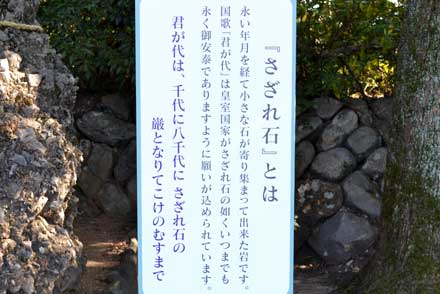 『さざれ石』とは
永い年月を経て小さな石が寄り集まって出来た岩です。
国歌「君が代」は皇室国家がさざれ石の如くいつまでも
永く御安泰でありますように願いが込められています。
君が代は、千代に八千代に さざれ石の
巌となりてこけのむすまで